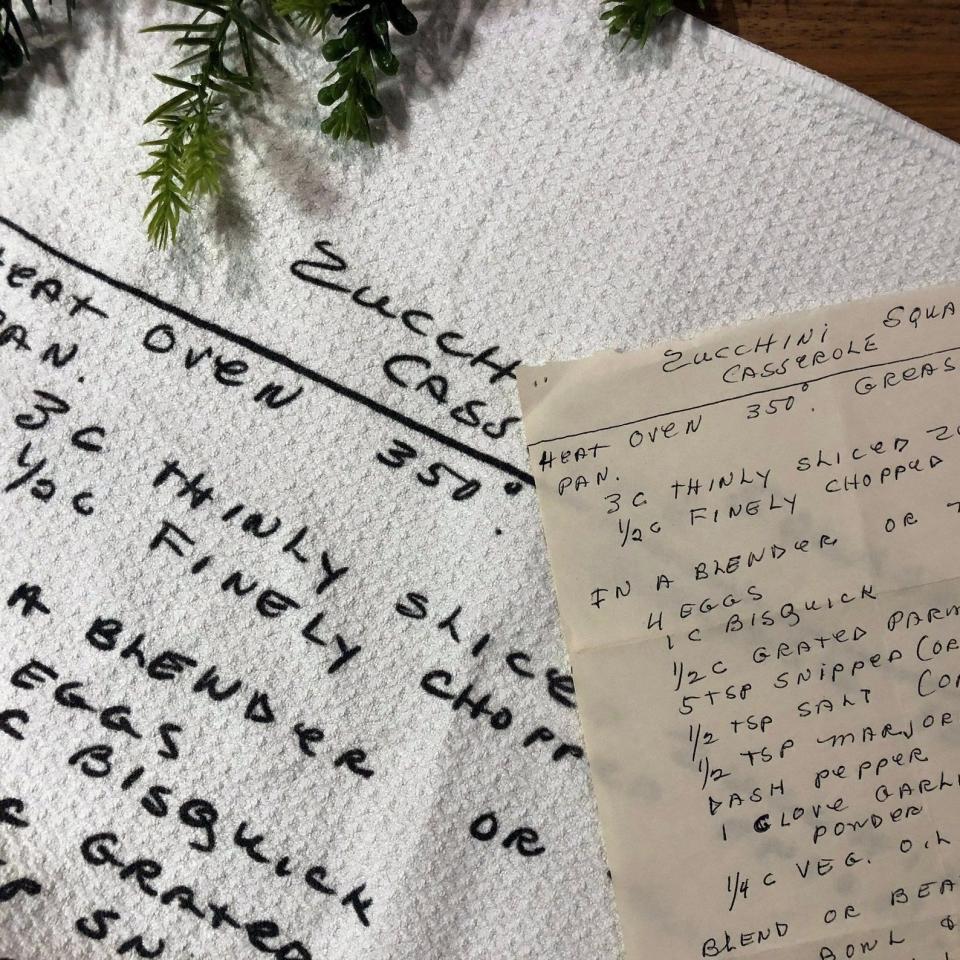 ZUCCH
CASS
HEAT OVEN 350°.
PAN.
3 C THINLY SLICE
1/2 C FINELY CHOPP
A BLENDER OR
EGGS
C BISQUICK
GRATED
SN
ZUCCHINI SQUA
CASSEROLE
HEAT OVEN 350°. GREAS
PAN.
3 C THINLY SLICED ZU
1/2 C FINELY CHOPPED
IN A BLENDER OR
4 EGGS
1 C BISQUICK
1/2 C GRATED PARM
5 TSP SNIPPED (OR
1/2 TSP SALT (OR
1/2 TSP MARJOR
DASH PEPPER
1 CLOVE GARLI
POWDER
1/4 C VEG. OIL
BLEND OR BEA
BOWL &